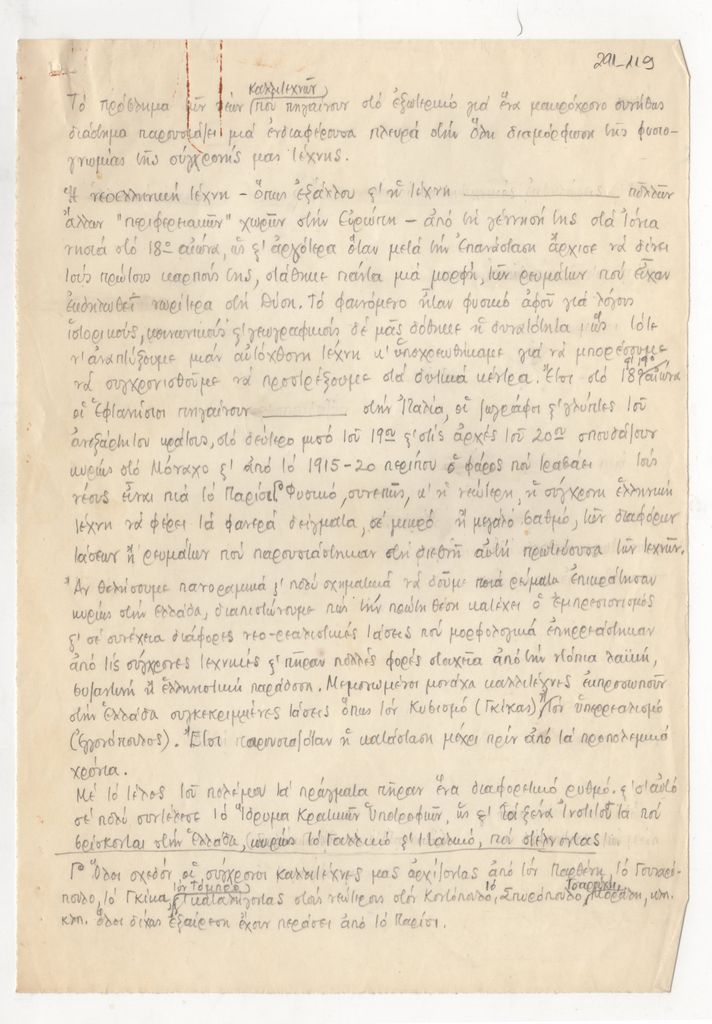 291-119
καλλιτεχνῶν
Τό πρόβλημα τῶν νέων (πού πηγαίνουν στό ἐξωτερικό γιά ἕνα μακρόχρονο συνήθως
διάστημα παρουσιάζει μιά ἐνδιαφέρουσα πλευρά στήν ὅλη διαμόρφωση τῆς φυσιο-
γνωμίας τῆς σύγχρονής μας τέχνης.
Ἡ νεοελληνική τέχνη – ὅπως ἐξάλλου κ' ἡ τέχνη πολλῶν
ἄλλων "περιφερειακῶν" χωρῶν στήν Εὐρώπη – ἀπό τή γέννησή της στά Ἰόνια
νησιά στό 18ο αἰώνα, ὡς κ' ἀργότερα ὅταν μετά τήν Ἐπανάσταση ἄρχισε νά δίνει
τούς πρώτους καρπούς της, στάθηκε πάντα μιά μορφή, τῶν ρευμάτων πού εἶχαν
ἐκδηλωθεῖ νωρίτερα στή Δύση. Τό φαινόμενο ἦταν φυσικό ἀφοῦ γιά λόγους
ἱστορικούς, κοινωνικούς κ' γεωγραφικούς δέ μᾶς δόθηκε ἡ δυνατότητα ὡς τότε
ν' ἀναπτύξουμε μιάν αὐτόχθονη τέχνη κ' ὑποχρεωθήκαμε γιά νά μπορέσουμε
νά συγχρονισθοῦμε νά προστρέξουμε στά δυτικά κέντρα. Ἔτσι στό 18ο κ' 19ο αἰώνα
οἱ Ἑφτανήσιοι πηγαίνουν στήν Ἰταλία, οἱ ζωγράφοι κ' γλύπτες τοῦ
ἀνεξάρτητου κράτους, στό δεύτερο μισό τοῦ 19ου κ' στίς ἀρχές τοῦ 20ου σπουδάζουν
κυρίως στό Μόναχο κ' ἀπό τό 1915-20 περίπου ὁ φάρος πού τραβάει τούς
νέους εἶναι πιά τό Παρίσι. Φυσικό, συνεπῶς, κ' ἡ νεώτερη, ἡ σύγχρονη ἑλληνική
τέχνη νά φέρει τά φανερά δείγματα, σέ μικρό ἤ μεγάλο βαθμό, τῶν διαφόρων
τάσεων ἤ ρευμάτων πού παρουσιάστηκαν στή διεθνῆ αὐτή πρωτεύουσα τῶν τεχνῶν.
Ἄν θελήσουμε πανοραμικά κ' πολύ σχηματικά νά δοῦμε ποιά ρεύματα ἐπικράτησαν
κυρίως στήν Ἑλλάδα, διαπιστώνουμε πώς τήν πρώτη θέση κατέχει ὁ ἐμπρεσιονισμός
κ' σέ συνέχεια διάφορες νεο-ρεαλιστικές τάσεις πού μορφολογικά ἐπηρρεάστηκαν
ἀπό τίς σύγχρονες τεχνικές κ' πῆραν πολλές φορές στοιχεῖα ἀπό τήν ντόπια λαϊκή,
βυζαντινή ἤ ἑλληνιστική παράδοση. Μεμονωμένοι μονάχα καλλιτέχνες ἐκπροσωποῦν
στήν Ἑλλάδα συγκεκριμένες τάσεις ὅπως τόν Κυβισμό (Γκίκας) τόν ὑπερρεαλισμό
(Ἐγγονόπουλος). Ἔτσι παρουσιαζόταν ἡ κατάσταση μέχρι πρίν ἀπό τά προπολεμικά
χρόνια.
Μέ τό τέλος τοῦ πολέμου τά πράγματα πῆραν ἕνα διαφορετικό ρυθμό. κ' σ' αὐτό
σέ πολύ συντέλεσε τό Ἵδρυμα Κρατικῶν Ὑποτροφιῶν, ὡς κ' τά ξένα Ἰνστιτοῦτα πού
βρίσκονται στήν Ἑλλάδα, κυρίως τό Γαλλικό κ' Ἰταλικό, πού στέλνοντας
Ὅλοι σχεδόν οἱ σύγχρονοι καλλιτέχνες μας ἀρχίζοντας ἀπό τόν Παρθένη, τό Γουναρό-
πουλο, τό Γκίκα, τόν Τόμπρο καταλήγοντας στούς νεώτερους στόν Κοντόπουλο, τό Σπυρόπουλο, Τσαρούχη, Μόραλη, κλπ.
κλπ. ὅλοι δίχως ἐξαίρεση ἔχουν περάσει ἀπό τό Παρίσι.